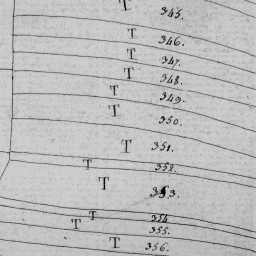 T 345.
T 346.
T 347.
T 348.
T 349.
T 350.
T 351.
T 352.
T 353.
T 354
T 355.
T 356.